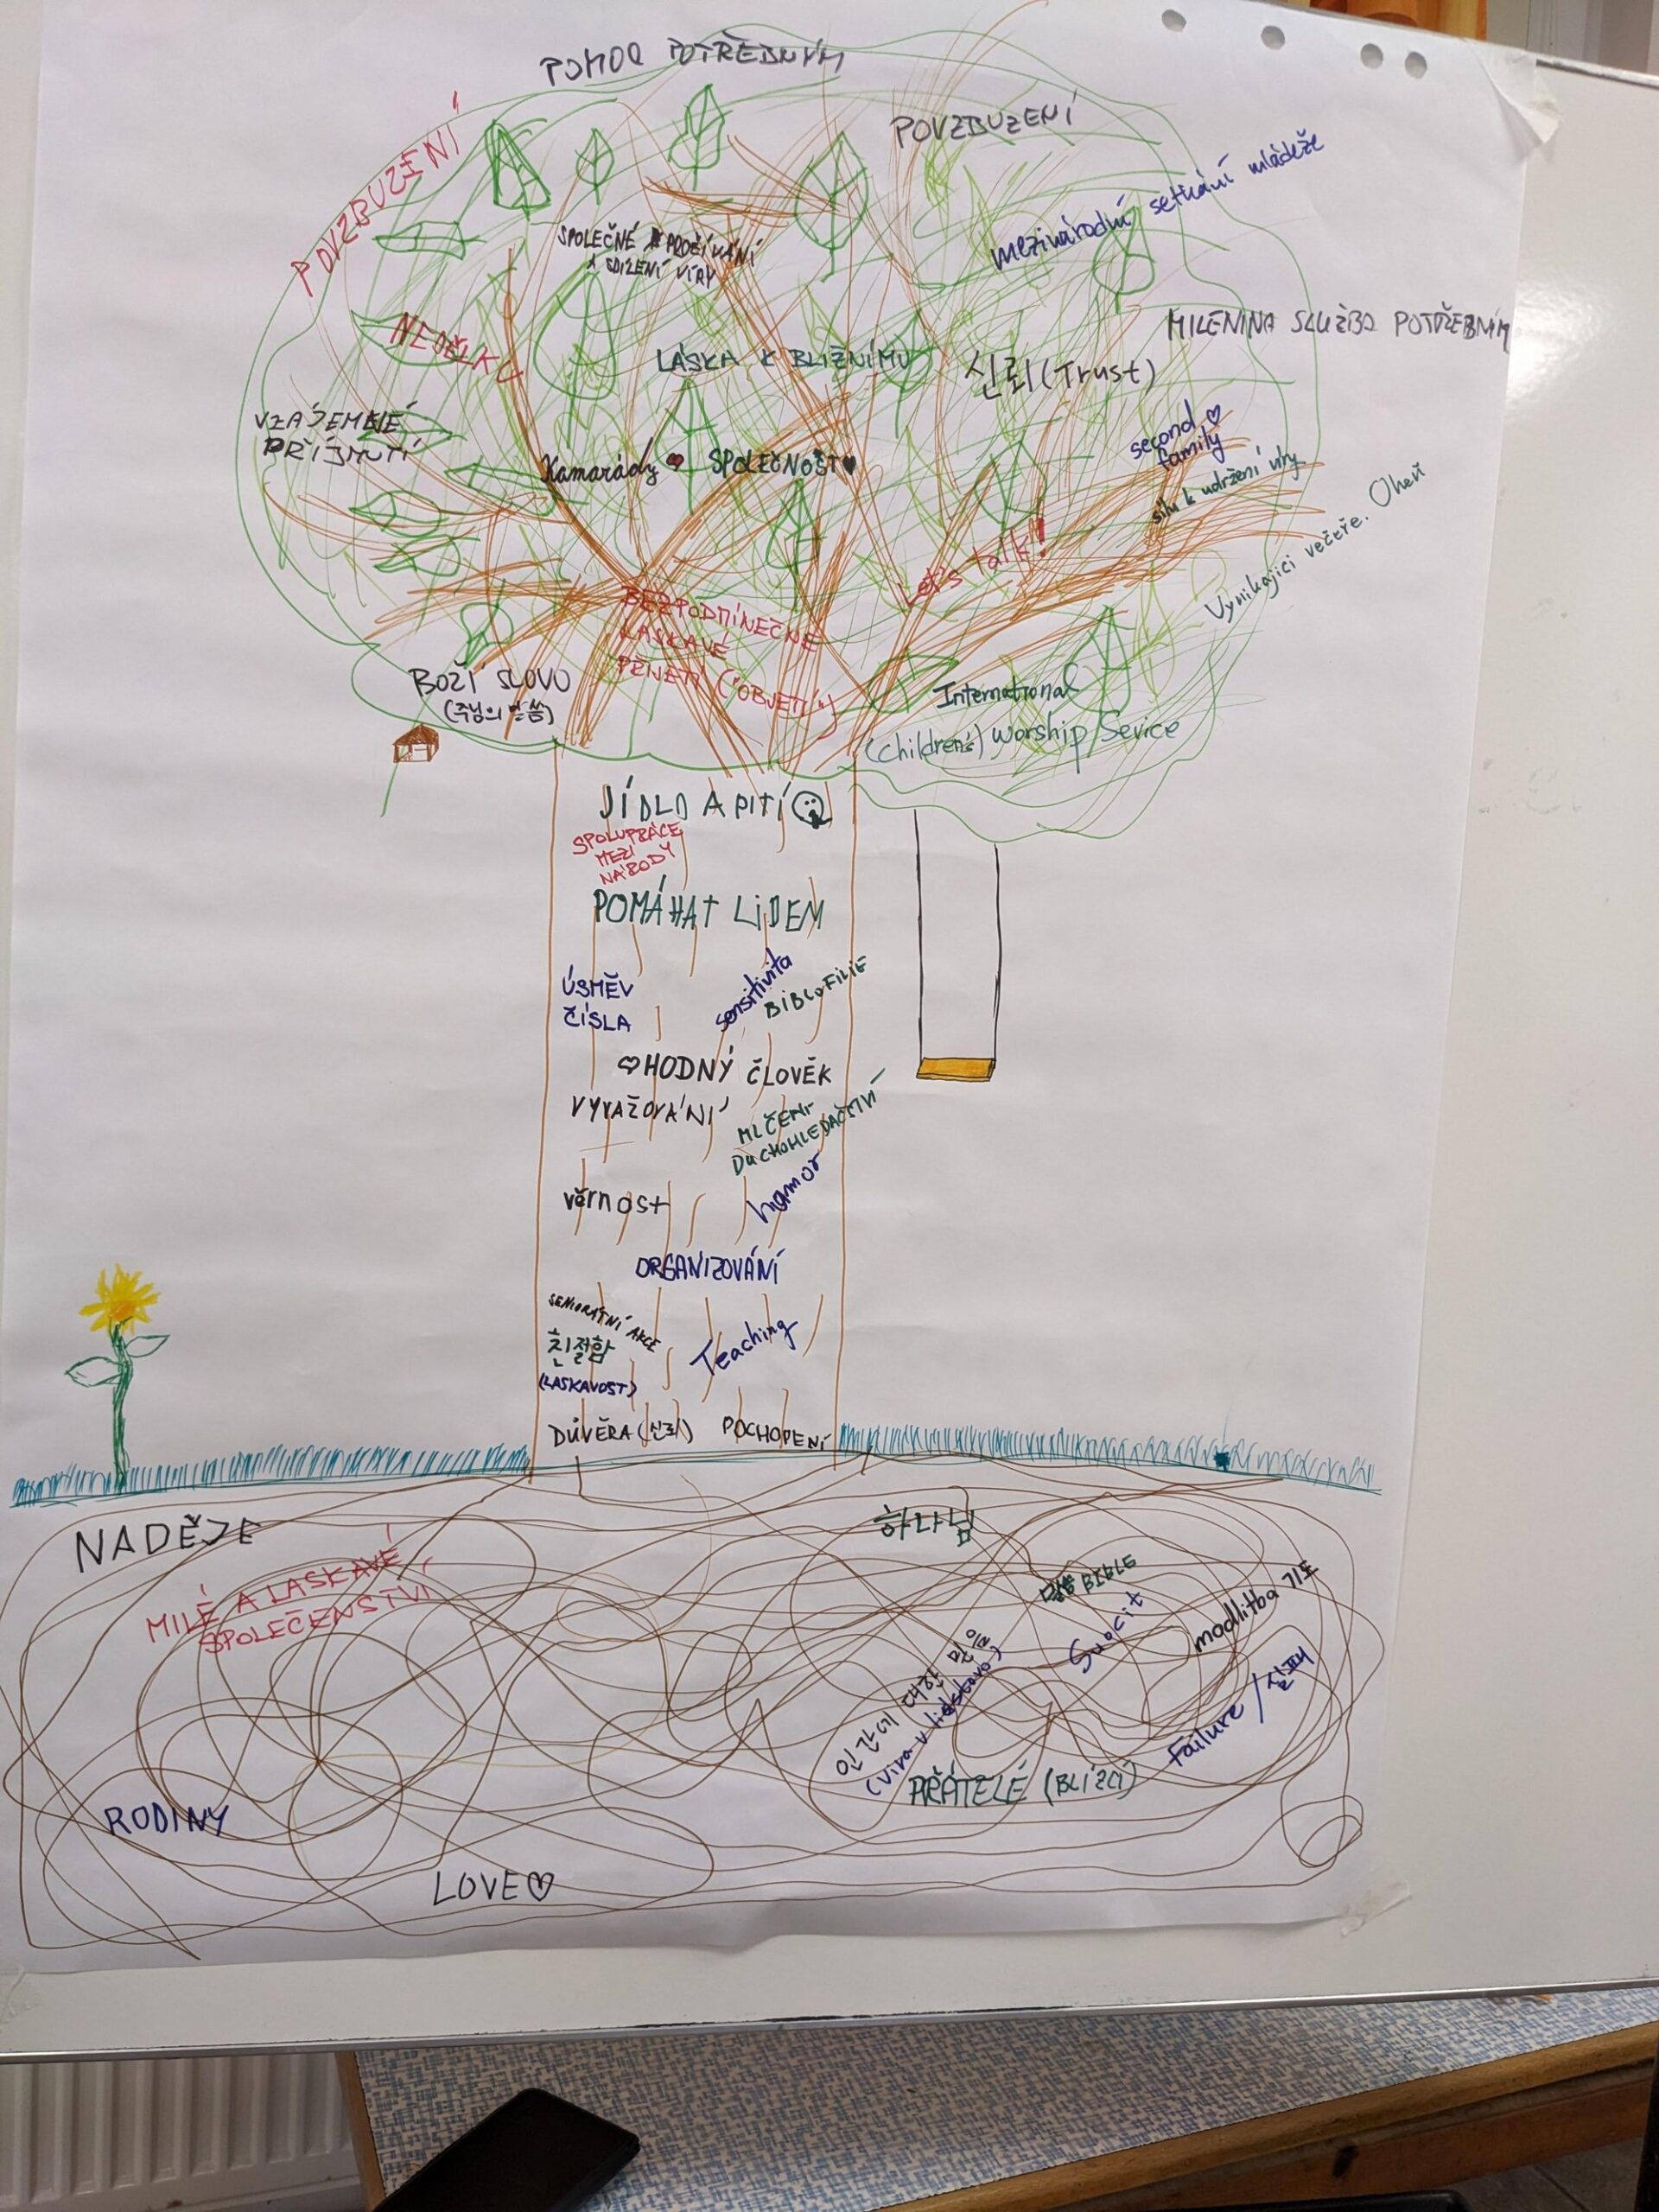 POMOC POTŘEBNÝM
POVZBUZENÍ
POVZBUZENÍ
mezinárodní setkání mládeže
SPOLEČNÉ PROŽÍVÁNÍ
A SDÍLENÍ VÍRY
MILENINA SLUŽBA POTŘEBNÝM
NEDĚLKC
LÁSKA K BLIŽNÍMU
신뢰 (Trust)
VZÁJEMNÉ
PŘIJMUTÍ
second ♡
family
Kamarády ♥
SPOLEČNOST ♥
sílu k udržení víry
Vynikající večeře. Oheň
Let's talk!
BEZPODMÍNEČNÉ
LASKAVÉ
PŘIJETÍ ("OBJETÍ")
BOŽÍ SLOVO
(주님의 말씀)
International
(children's) Worship Sevice
JÍDLO A PITÍ
SPOLUPRÁCE
MEZI
NÁRODY
POMÁHAT LIDEM
ÚSMĚV
ČÍSLA
sensitivita
BIBLOFILIE
♡HODNÝ ČLOVĚK
VYVAŽOVÁNÍ
MLČENÍ
DUCHOHLEDAČSTVÍ
věrnost
humor
ORGANIZOVÁNÍ
SENIORÁTNÍ AKCE
친절함
(LASKAVOST)
Teaching
DŮVĚRA (신뢰)
POCHOPENÍ
NADĚJE
하나님
MILÉ A LASKAVÉ
SPOLEČENSTVÍ
BIBLE
modlitba 기도
인간에 대한 믿음
(víra v lidstvo)
Failure / 실패
PŘÁTELÉ (BLÍZCÍ)
RODINY
LOVE♡